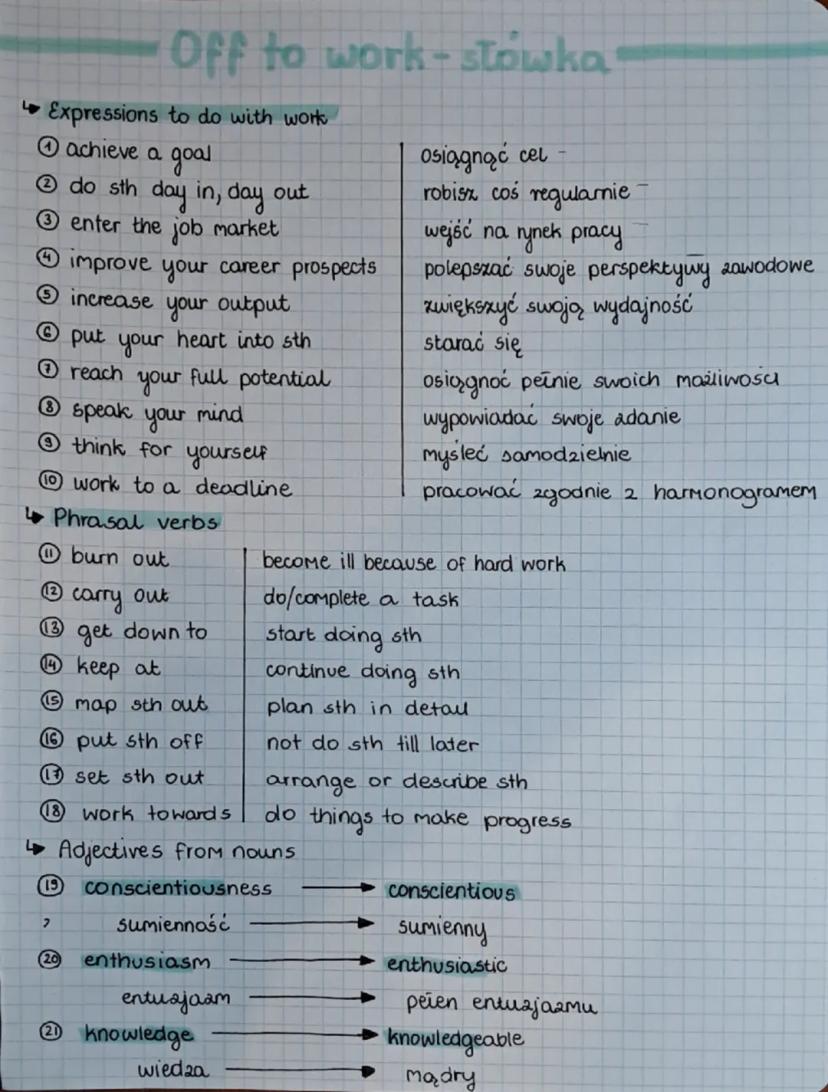 Off to work - słówka
↳ Expressions to do with work
① achieve a goal | osiągnąć cel -
② do sth day in, day out | robisz coś regularnie -
③ enter the job market | wejść na rynek pracy -
④ improve your career prospects | polepszać swoje perspektywy zawodowe
⑤ increase your output | zwiększyć swoją wydajność
⑥ put your heart into sth | starać się
⑦ reach your full potential | osiągnoć pełnie swoich możliwości
⑧ speak your mind | wypowiadać swoje zdanie
⑨ think for yourself | myśleć samodzielnie
⑩ work to a deadline | pracować zgodnie z harmonogramem
↳ Phrasal verbs
⑪ burn out | become ill because of hard work
⑫ carry out | do/complete a task
⑬ get down to | start doing sth
⑭ keep at | continue doing sth
⑮ map sth out | plan sth in detail
⑯ put sth off | not do sth till later
⑰ set sth out | arrange or describe sth
⑱ work towards | do things to make progress
↳ Adjectives from nouns
⑲ conscientiousness → conscientious
, sumienność → sumienny
⑳ enthusiasm → enthusiastic
entuzjazm → pełen entuzjazmu
㉑ knowledge → knowledgeable
wiedza → mądry